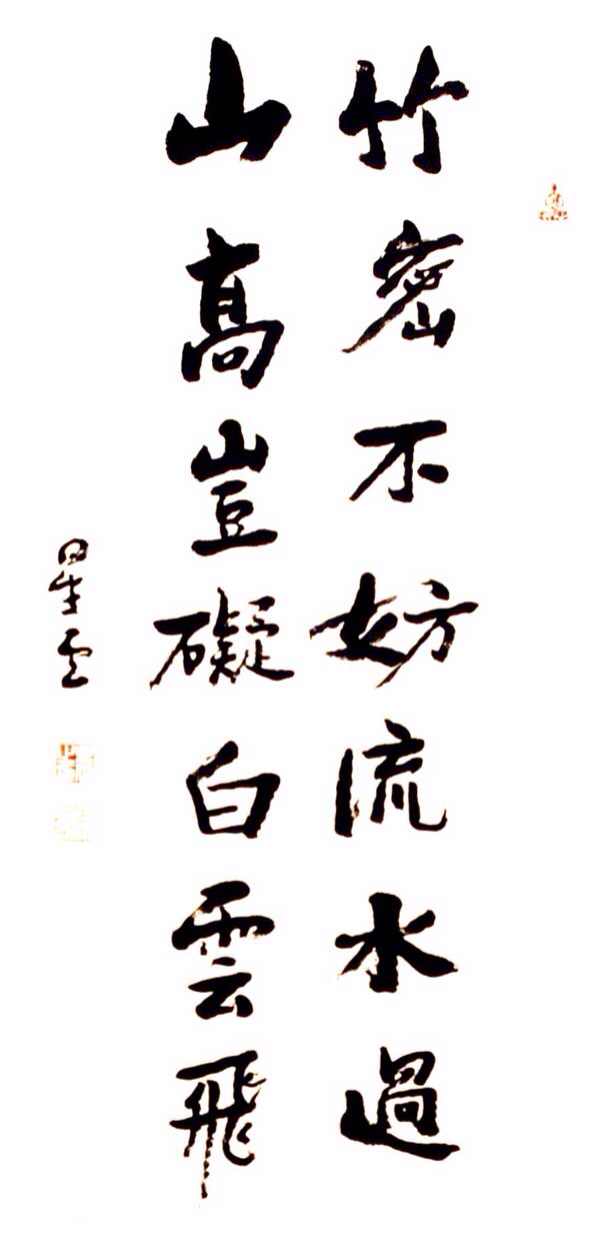 竹密不妨流水過
山高豈礙白雲飛
星雲